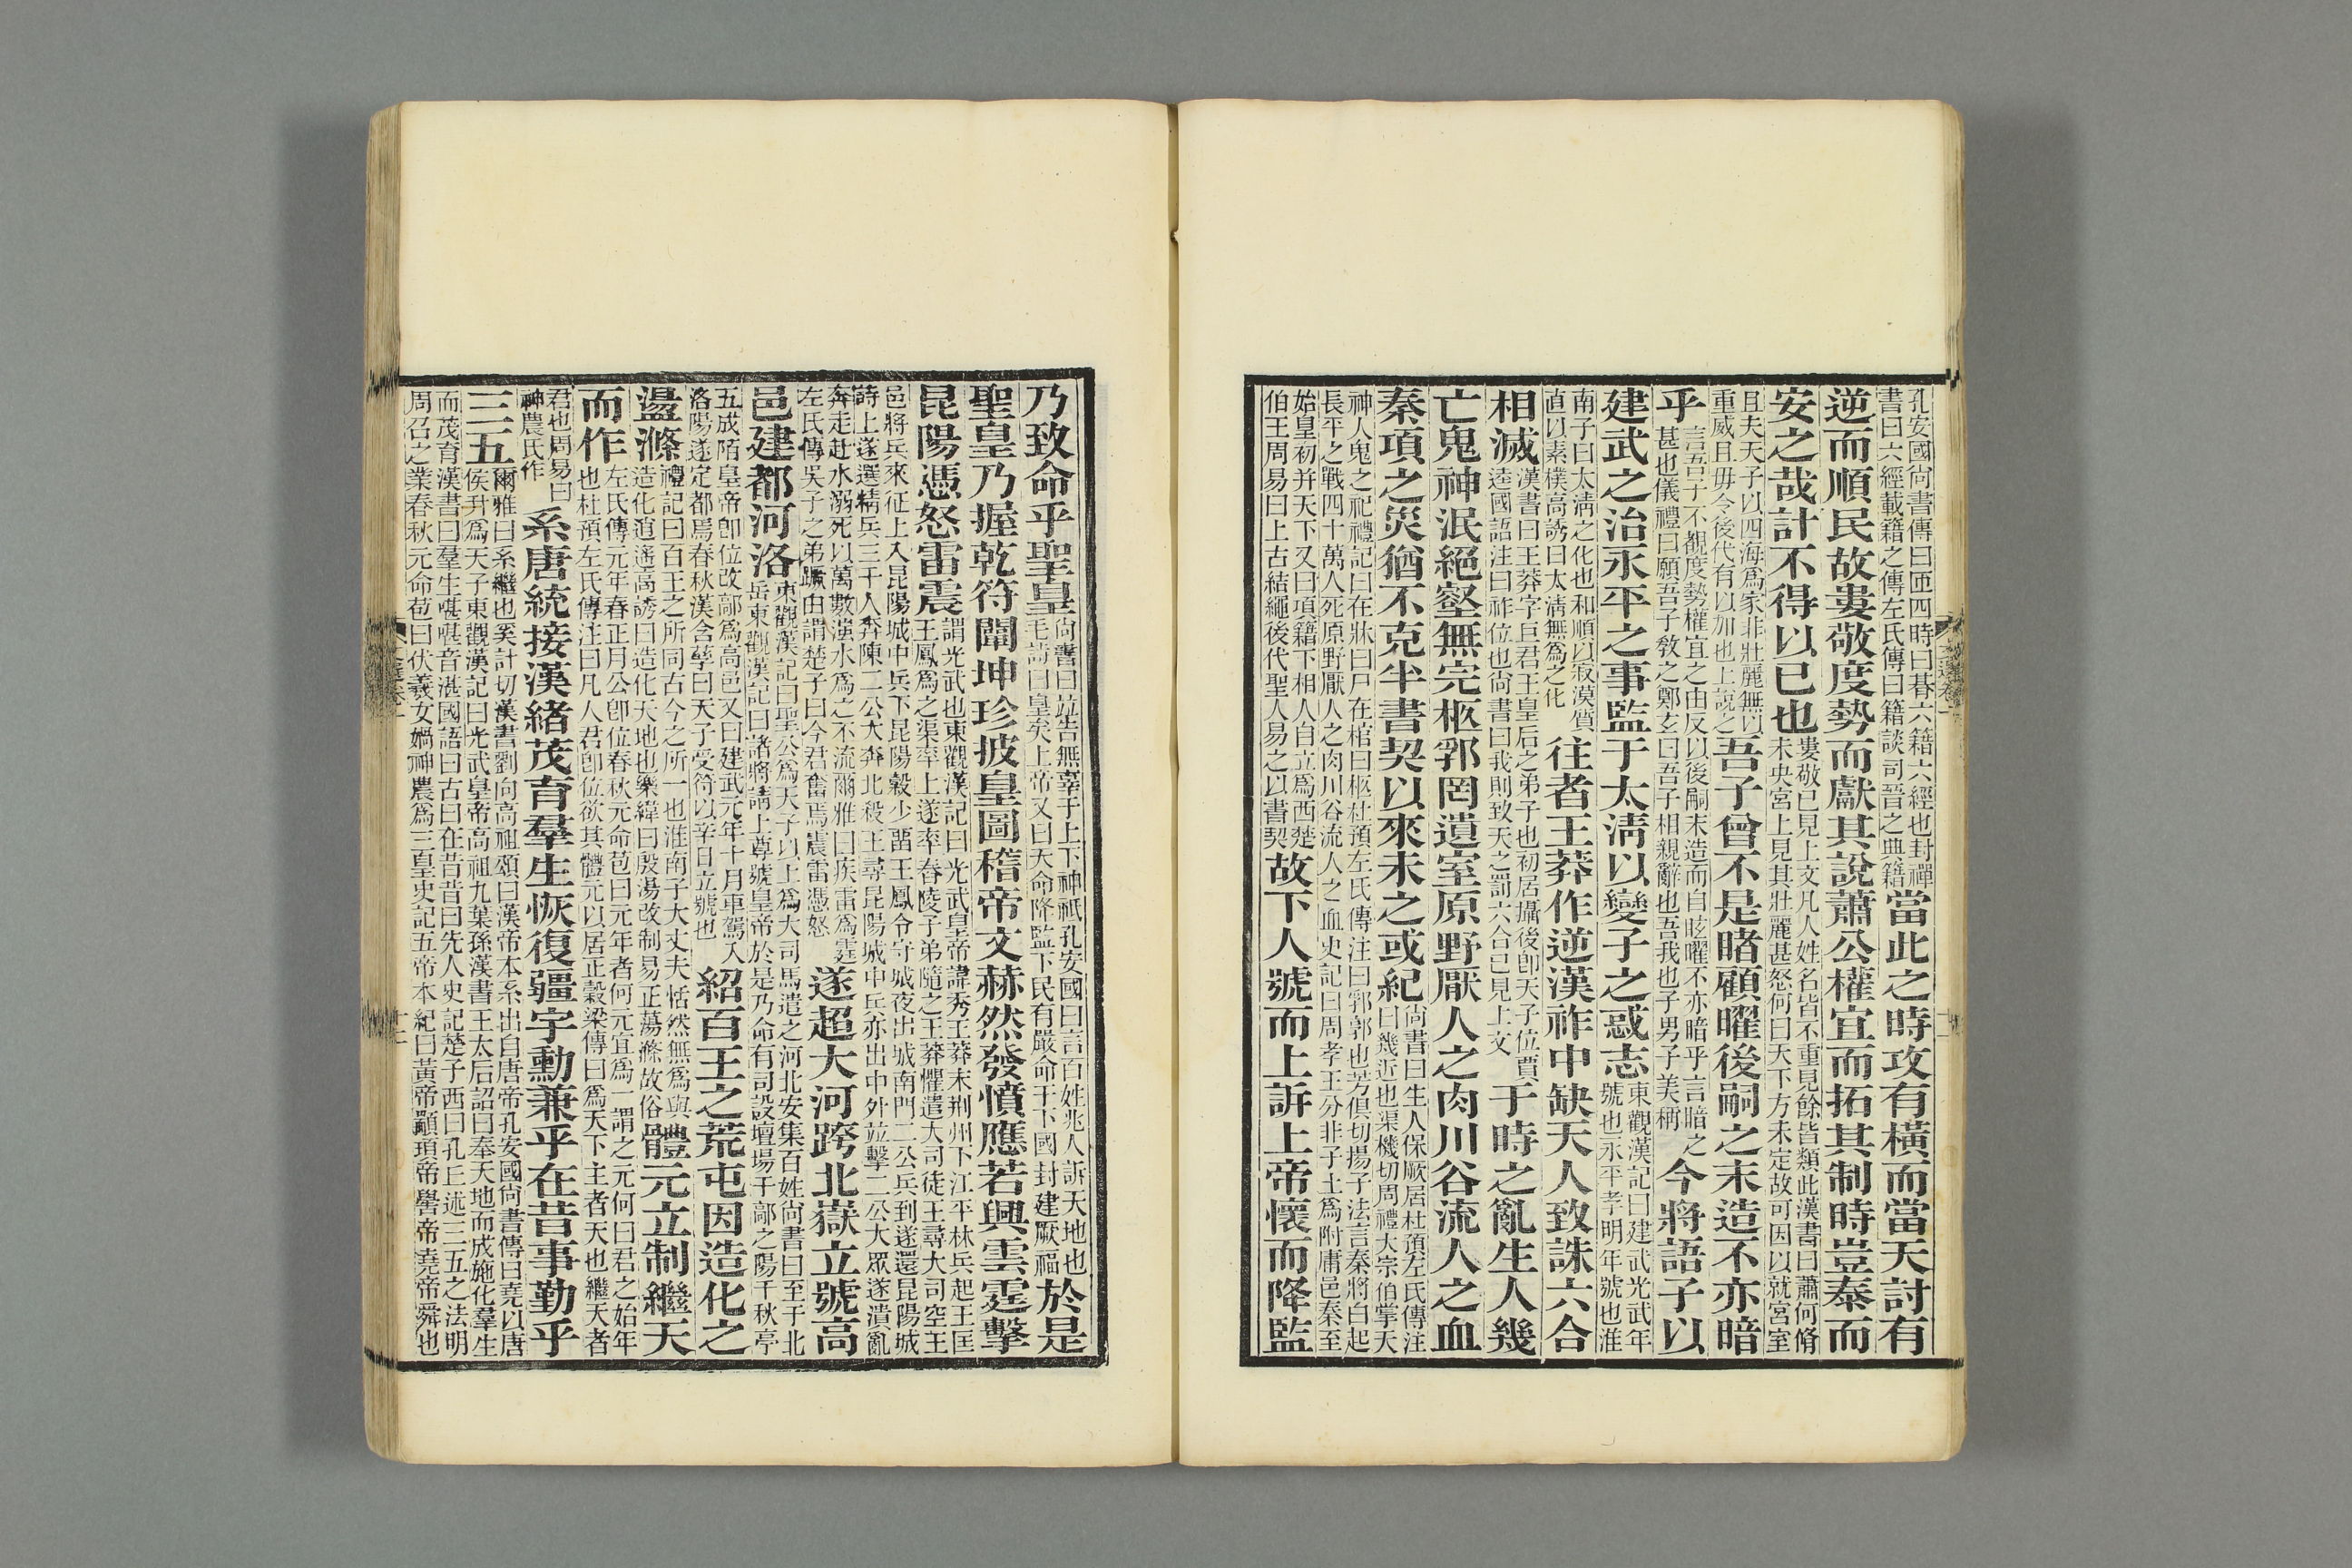 孔安國尚書傳曰匝四時曰朞六籍六經也封禪書曰六經載籍之傳左氏傳曰籍談司晉之典籍當此之時攻有橫而當天討有
逆而順民故婁敬度勢而獻其說蕭公權宜而拓其制時豈泰而
安之哉計不得以已也婁敬已見上文凡人姓名皆不重見餘皆類此漢書曰蕭何脩未央宮上見其壯麗甚怒何曰天下方未定故可因以就宮室
且夫天子以四海爲家非壯麗無以重威且毋令後代有以加也上說之吾子曾不是睹顧曜後嗣之末造不亦暗
乎言吾子不覩度勢權宜之由反以後嗣末造而自眩曜不亦暗乎言暗之甚也儀禮曰願吾子敎之鄭玄曰吾子相親辭也吾我也子男子美稱今將語子以
建武之治永平之事監于太淸以變子之惑志東觀漢記曰建武光武年號也永平孝明年號也淮
南子曰太淸之化也和順以寂漠質直以素樸高誘曰太淸無爲之化往者王莽作逆漢祚中缺天人致誅六合
相滅漢書曰王莽字巨君王皇后之弟子也初居攝後卽天子位賈逵國語注曰祚位也尚書曰我則致天之罰六合已見上文于時之亂生人幾
亡鬼神泯絕壑無完柩郛罔遺室原野厭人之肉川谷流人之血
秦項之災猶不克半書契以來未之或紀尚書曰生人保厥居杜預左氏傳注曰幾近也渠機切周禮大宗伯掌天
神人鬼之祀禮記曰在牀曰尸在棺曰柩杜預左氏傳注曰郛郭也芳俱切揚子法言秦將白起長平之戰四十萬人死原野厭人之肉川谷流人之血史記曰周孝王分非子土爲附庸邑秦至
始皇初并天下又曰項籍下相人自立爲西楚伯王周易曰上古結繩後代聖人易之以書契故下人號而上訴上帝懷而降監
乃致命乎聖皇尚書曰並告無辜于上下神祗孔安國曰言百姓兆人訴天地也毛詩曰皇矣上帝又曰天命降監下民有嚴命于下國封建厥福於是
聖皇乃握乾符闡坤珍披皇圖稽帝文赫然發憤應若興雲霆擊
昆陽憑怒雷震謂光武也東觀漢記曰光武皇帝諱秀王莽末荆州下江平林兵起王匡王鳳爲之渠率上遂率舂陵子弟隨之王莽懼遣大司徒王尋大司空王
邑將兵來征上入昆陽城中兵下昆陽穀少留王鳳令守城夜出城南門二公兵到遂還昆陽城時上遂選精兵三千人奔陳二公大奔北殺王尋昆陽城中兵亦出中外並擊二公大眾遂潰亂
奔走赴水溺死以萬數滍水爲之不流爾雅曰疾雷爲霆左氏傳吳子之弟蹶由謂楚子曰今君奮焉震雷憑怒遂超大河跨北嶽立號高
邑建都河洛東觀漢記曰聖公爲天子以上爲大司馬遣之河北安集百姓尚書曰至于北岳東觀漢記曰諸將請上尊號皇帝於是乃命有司設壇場于鄗之陽千秋亭
五成陌皇帝卽位改鄗爲高邑又曰建武元年十月車駕入洛陽遂定都焉春秋漢含孳曰天子受符以辛日立號也紹百王之荒屯因造化之
盪滌禮記曰百王之所同古今之所一也淮南子大丈夫恬然無爲與造化逍遙高誘曰造化天地也樂緯曰殷湯改制易正蕩滌故俗體元立制繼天
而作左氏傳元年春正月公卽位春秋元命苞曰元年者何元宜爲一謂之元何曰君之始年也杜預左氏傳注曰凡人君卽位欲其體元以居正穀梁傳曰爲天下主者天也繼天者
君也周易曰神農氏作系唐統接漢緒茂育羣生恢復疆宇勳兼乎在昔事勤乎
三五爾雅曰系繼也奚計切漢書劉向高祖頌曰漢帝本系出自唐帝孔安國尚書傳曰堯以唐侯升爲天子東觀漢記曰光武皇帝高祖九葉孫漢書王太后詔曰奉天地而成施化羣生
而茂育漢書曰羣生啿啿音湛國語曰古曰在昔昔曰先人史記楚子西曰孔丘述三五之法明周召之業春秋元命苞曰伏羲女媧神農爲三皇史記五帝本紀曰黃帝顓頊帝嚳帝堯帝舜也